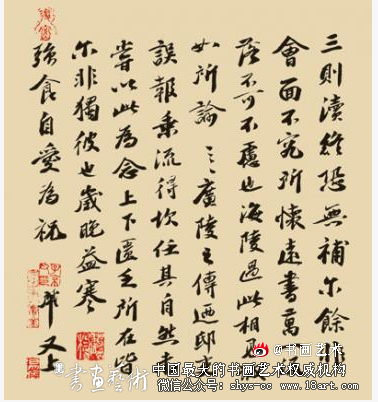 三則瀆終恐無補尔餘非
會面不究所懷遠書萬
落不可不慮也海陵過此相
如所論之廣陵之傳迺邸
誤報乘流得坎任其自然未
嘗以此為念上下匱乏所在皆
尔非獨彼也歲晚益寒
強食自愛為祝
又上
@书画艺术
書畫藝術 中国最大的书画艺术权威机构
微信公众号: shys-cc www.18art.com